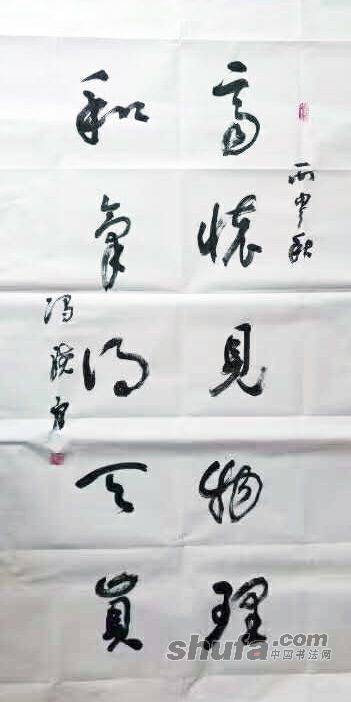 丙申秋
高懷見物理
和氣得天真
冯
shufa.com
中国书法网